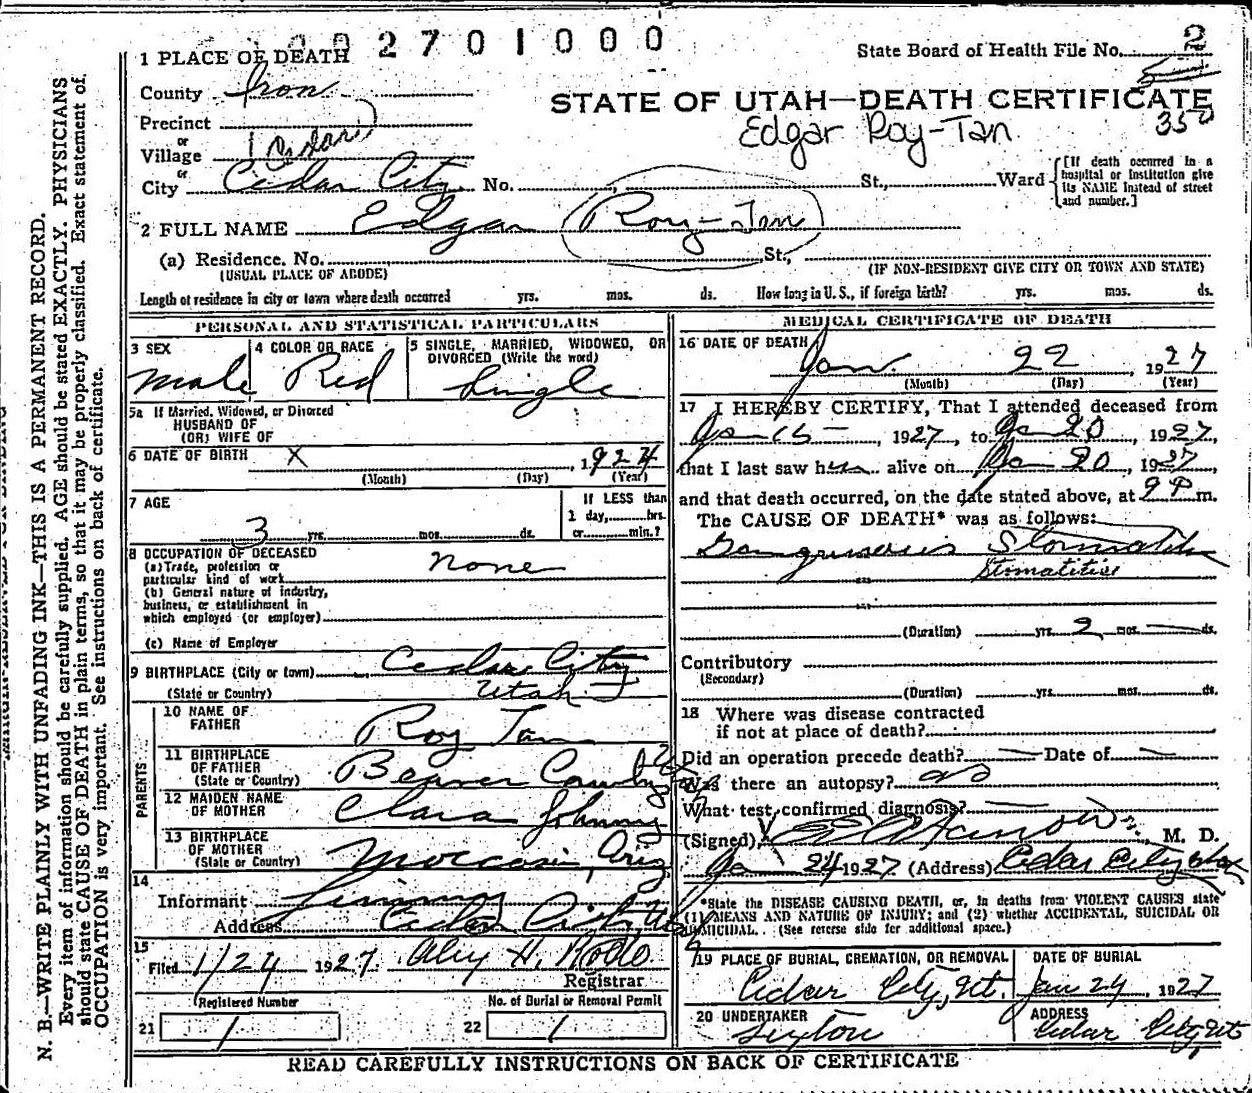 2701000
State Board of Health File No. 2
1 PLACE OF DEATH
County Iron
STATE OF UTAH—DEATH CERTIFICATE
350
Edgar Roy-Tan
Precinct
or
Village (Cedar)
or
City Cedar City No. St., Ward
[If death occurred in a
hospital or institution give
its NAME instead of street
and number.]
2 FULL NAME Edgar Roy-Tan
(a) Residence. No. St.,
(USUAL PLACE OF ABODE) (IF NON-RESIDENT GIVE CITY OR TOWN AND STATE)
Length of residence in city or town where death occurred yrs. mos. ds. How long in U. S., if foreign birth? yrs. mos. ds.
PERSONAL AND STATISTICAL PARTICULARS
3 SEX
Male
4 COLOR OR RACE
Red
5 SINGLE, MARRIED, WIDOWED, OR
DIVORCED (Write the word)
Single
5a If Married, Widowed, or Divorced
HUSBAND OF
(OR) WIFE OF
6 DATE OF BIRTH X , 1924
(Month) (Day) (Year)
7 AGE
3 yrs. mos. ds.
If LESS than
1 day, hrs.
or min.?
8 OCCUPATION OF DECEASED
(a) Trade, profession or
particular kind of work none
(b) General nature of industry,
business, or establishment in
which employed (or employer)
(c) Name of Employer
9 BIRTHPLACE (City or town) Cedar City
(State or Country) Utah
PARENTS
10 NAME OF
FATHER Roy Tan
11 BIRTHPLACE
OF FATHER
(State or Country) Beaver County
12 MAIDEN NAME
OF MOTHER Clara Johnny
13 BIRTHPLACE
OF MOTHER
(State or Country) Moccasin, Ariz
14
Informant Jimmy
Address Cedar City, Ut
15
Filed 1/24 1927 H.
Registrar
Registered Number
21 1
No. of Burial or Removal Permit
22 1
MEDICAL CERTIFICATE OF DEATH
16 DATE OF DEATH
Jan. 22 1927
(Month) (Day) (Year)
17 I HEREBY CERTIFY, That I attended deceased from
Ja 15 , 1927, to Ja 20 , 1927,
that I last saw him alive on Ja 20 , 1927,
and that death occurred, on the date stated above, at 9 P m.
The CAUSE OF DEATH* was as follows:
Gangrenous Stomatitis
Stomatitis
(Duration) yrs. 2 mos. — ds.
Contributory
(Secondary)
(Duration) yrs. mos. ds.
18 Where was disease contracted
if not at place of death?
Did an operation precede death? — Date of —
Was there an autopsy? no
What test confirmed diagnosis? —
(Signed) M. D.
Ja 24 1927 (Address) Cedar City Utah
*State the DISEASE CAUSING DEATH, or, in deaths from VIOLENT CAUSES state
(1) MEANS AND NATURE OF INJURY; and (2) whether ACCIDENTAL, SUICIDAL OR
HOMICIDAL. (See reverse side for additional space.)
19 PLACE OF BURIAL, CREMATION, OR REMOVAL
Cedar City, Ut.
DATE OF BURIAL
Jan 24, 1927
20 UNDERTAKER
Sexton
ADDRESS
Cedar City, Ut
READ CAREFULLY INSTRUCTIONS ON BACK OF CERTIFICATE
N. B.—WRITE PLAINLY WITH UNFADING INK—THIS IS A PERMANENT RECORD.
Every item of information should be carefully supplied. AGE should be stated EXACTLY. PHYSICIANS
should state CAUSE OF DEATH in plain terms, so that it may be properly classified. Exact statement of
OCCUPATION is very important. See instructions on back of certificate.